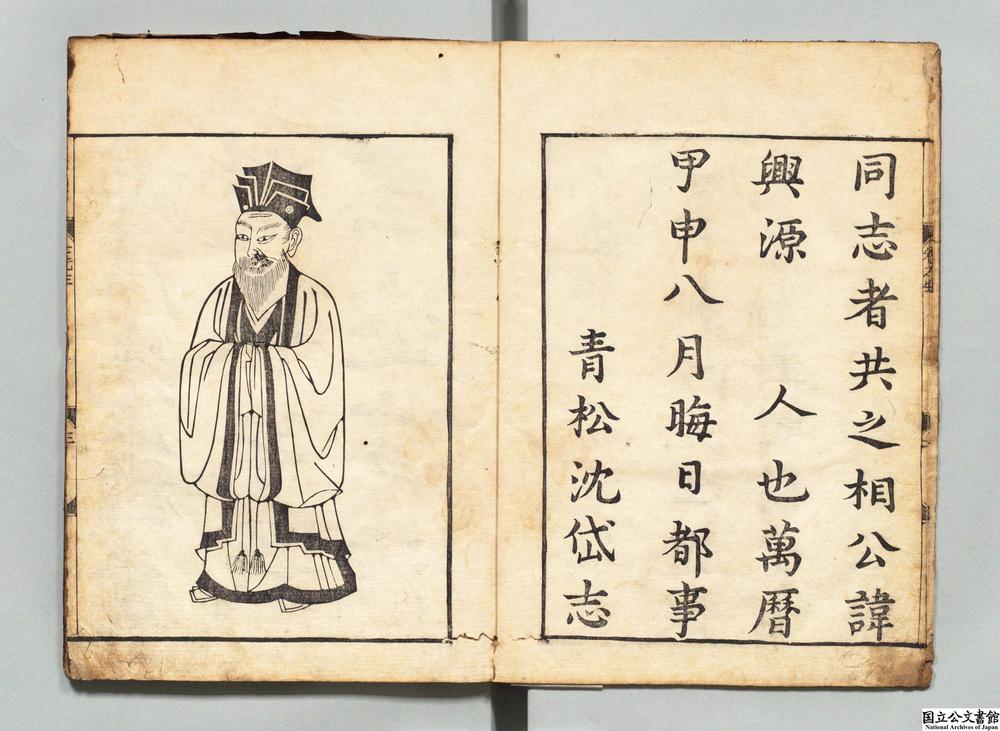 同志者共之相公諱
興源　　人也萬曆
甲申八月晦日都事
青松沈岱志
三
国立公文書館
National Archives of Japan